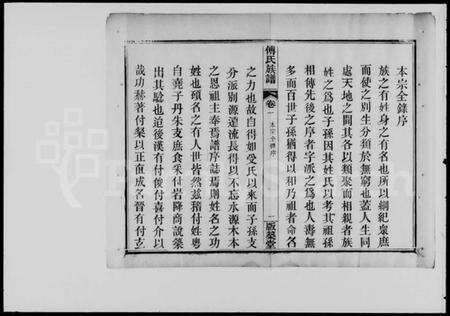 本宗全錄序
族之有姓身之有名也所以綱紀衆庶
而使之別生分類於無窮也蓋人生同
處天地之間其各以類聚而相親者族
姓之爲也子孫因其姓氏以考其祖孫
相傳先後之序者字派之爲也人壽無
多而百世子孫猶得以和乃祖者命名
傅氏族譜
卷一
本宗全錄序
一
版築堂
之力也故自得姓受氏以來而子孫支
分派別源遠流長得以不忘水源木本
之恩祖主奉焉譜序誌焉則姓名之功
也顧名之有人世皆然茲稽付姓粵
自堯子丹朱支庶食采付岩降商說築
出其騐也迨後漢有付俊付喜付介以
哉功赫著付燮以正直成名晉有付玄